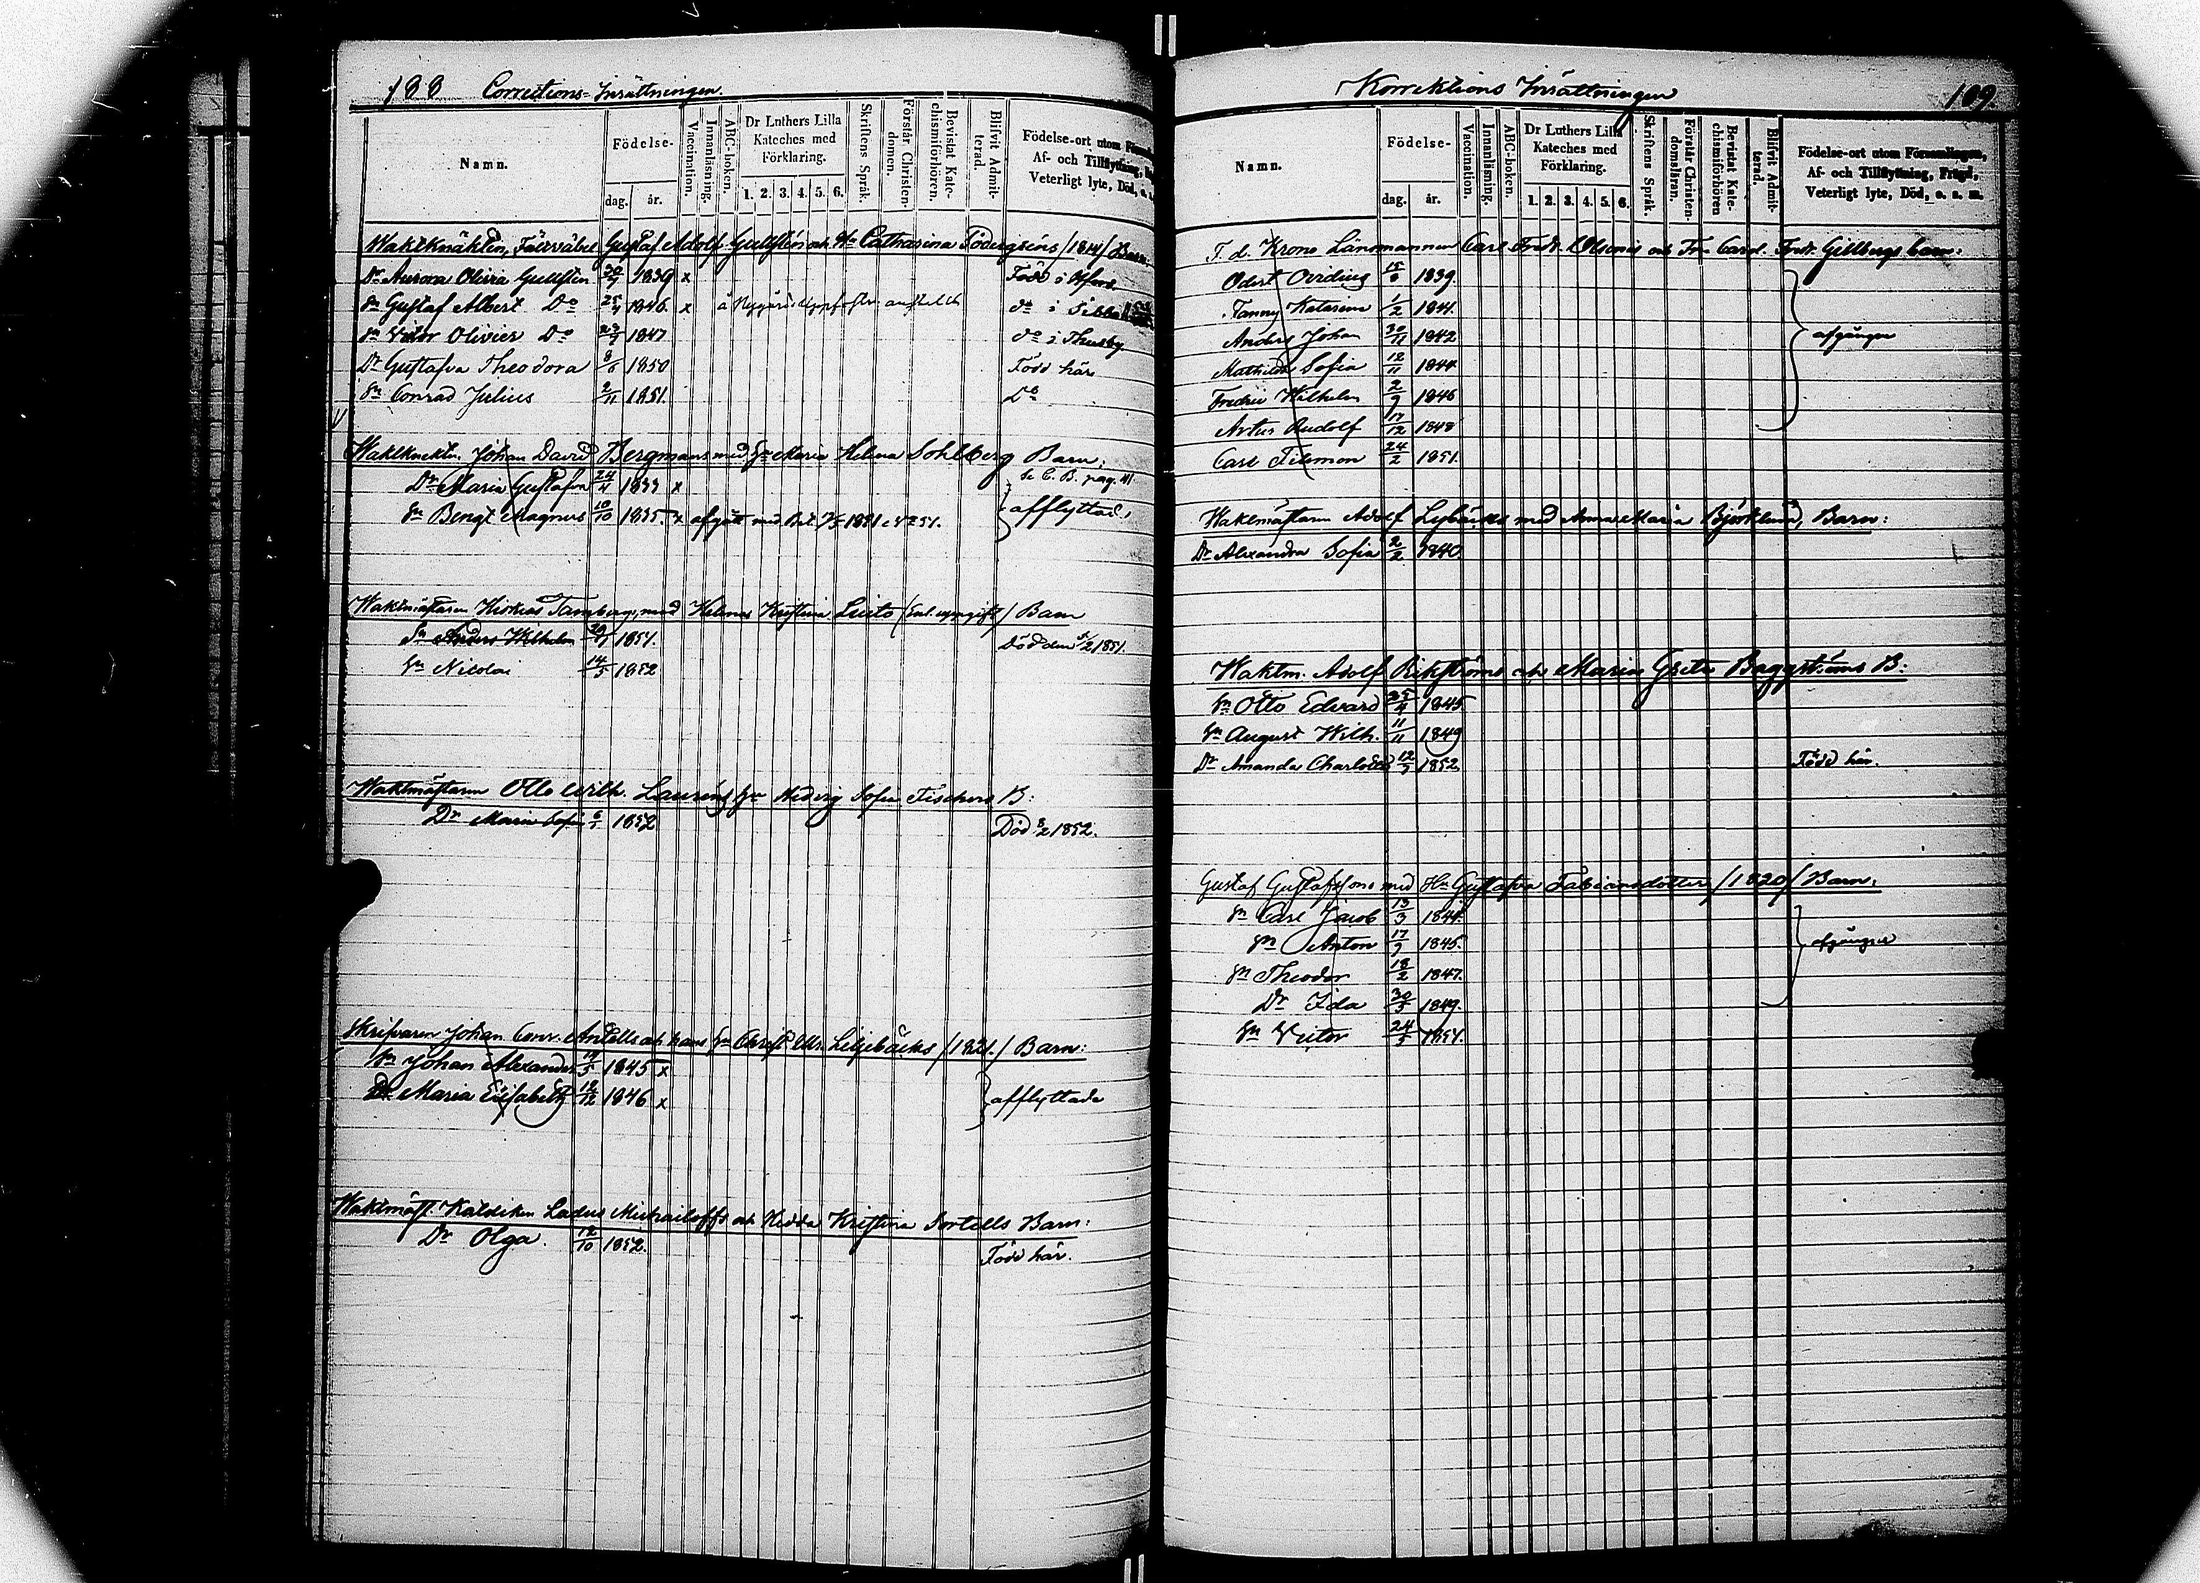 188 Corrections-Inrättningen.
Namn.
Födelse-
dag. år.
Vaccination.
Innanläsning.
ABC-boken.
Dr Luthers Lilla Kateches med Förklaring.
1. 2. 3. 4. 5. 6.
Skriftens Språk.
Förstår Christendomen.
Bevistat Katechismiförhören.
Blifvit Admitterad.
Födelse-ort utom
Af- och Tillflyttning,
Veterligt lyte, Död,
Gustaf Adolf och Catharina /1814/ Barn:
Dr Aurora Olivia 1839 x Född i
Sn Gustaf Albert Do 1846. x do i
Sn Victor Olivier Do 1847 do i Thusby
Dr Gustafva Theodora 8/6 1850 Född här
Sn Conrad Julius 2/11 1851. Do
Johan David Bergmans med Maria Helena Sohlberg Barn:
Dr Maria Gustafva 24/4 1833 x se C. B. pag. 41
Sn Bengt Magnus 10/10 1835. x afgått med Bet. afflyttad,
Waktmästaren Tamberg, med Helena Kristina /Enl. uppgift/ Barn
Sn Anders Wilhelm 1851. Död den 1851.
Sn Nicolai 14/5 1852
Waktmästaren Otto Wilh. Hedvig Sofia Fischers B:
Dr Maria Sofia 1852 Död 8/2 1852.
Skrifvaren Johan och hans Liljebäcks /1821./ Barn:
Sn Johan Alexander 1845 x
Dr Maria Elisabeth 12/12 1846 x afflyttade
Waktmäst. Michailoffs och Hedda Kristina Barn:
Dr Olga. 12/10 1852. Född här.
Korrektions Inrättningen 189
Namn.
Födelse-
dag. år.
Vaccination.
Innanläsning.
ABC-boken.
Dr Luthers Lilla Kateches med Förklaring.
1. 2. 3. 4. 5. 6.
Skriftens Språk.
Förstår Christendomsläran.
Bevistat Katechismiförhören
Blifvit Admitterad.
Födelse-ort utom Församlingen,
Af- och Tillflyttning, Frägd,
Veterligt lyte, Död, o. s. m.
F. d. Krono Länsmannen Carl Fredr. och Fru Carol. Fredr. Gillbergs barn:
1839.
Fanny Katarina 1/2 1841.
Anders Johan 30/11 1842 afgångne
Mathilda Sofia 12/11 1844
Fredric Wilhelm 2/9 1846
Artur Rudolf 17/12 1848
Carl Filemon 24/2 1851.
Waktmästaren Adolf Lybäcks med Anna Maria Björklund, Barn:
Dr Alexandra Sofia 2/2 1840.
Waktm. Adolf och Maria Greta Baggströms B:
Sn Otto Edvard 25/4 1845
Sn August Wilh. 11/11 1849
Dr Amanda Charlotta 1852 Född här.
Gustaf Gustafssons med Hu Gustafva Fabiansdotter /1820/ Barn:
Sn Carl Jacob 13/3 1844.
Sn Anton 17/9 1845. afgångne
Sn Theodor 18/2 1847.
Dr Ida 30/5 1849.
Sn Victor 24/5 1851.